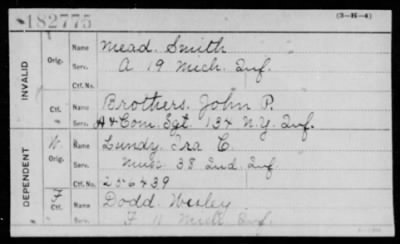 182775
(3-H-4)
INVALID
Orig.
Name Mead. Smith
Serv. A 19 Mich. Inf.
Ctf. No.
Ctf.
Name Brothers. John P.
Serv. A & Com. Sgt. 134 N.Y. Inf.
DEPENDENT
W. Orig.
Name Lundy. Ira C.
Serv. Music 38 Ind. Inf.
Ctf. No. 256439
F. Ctf.
Name Dodd. Wesley
Serv. F 11 Mich Inf.